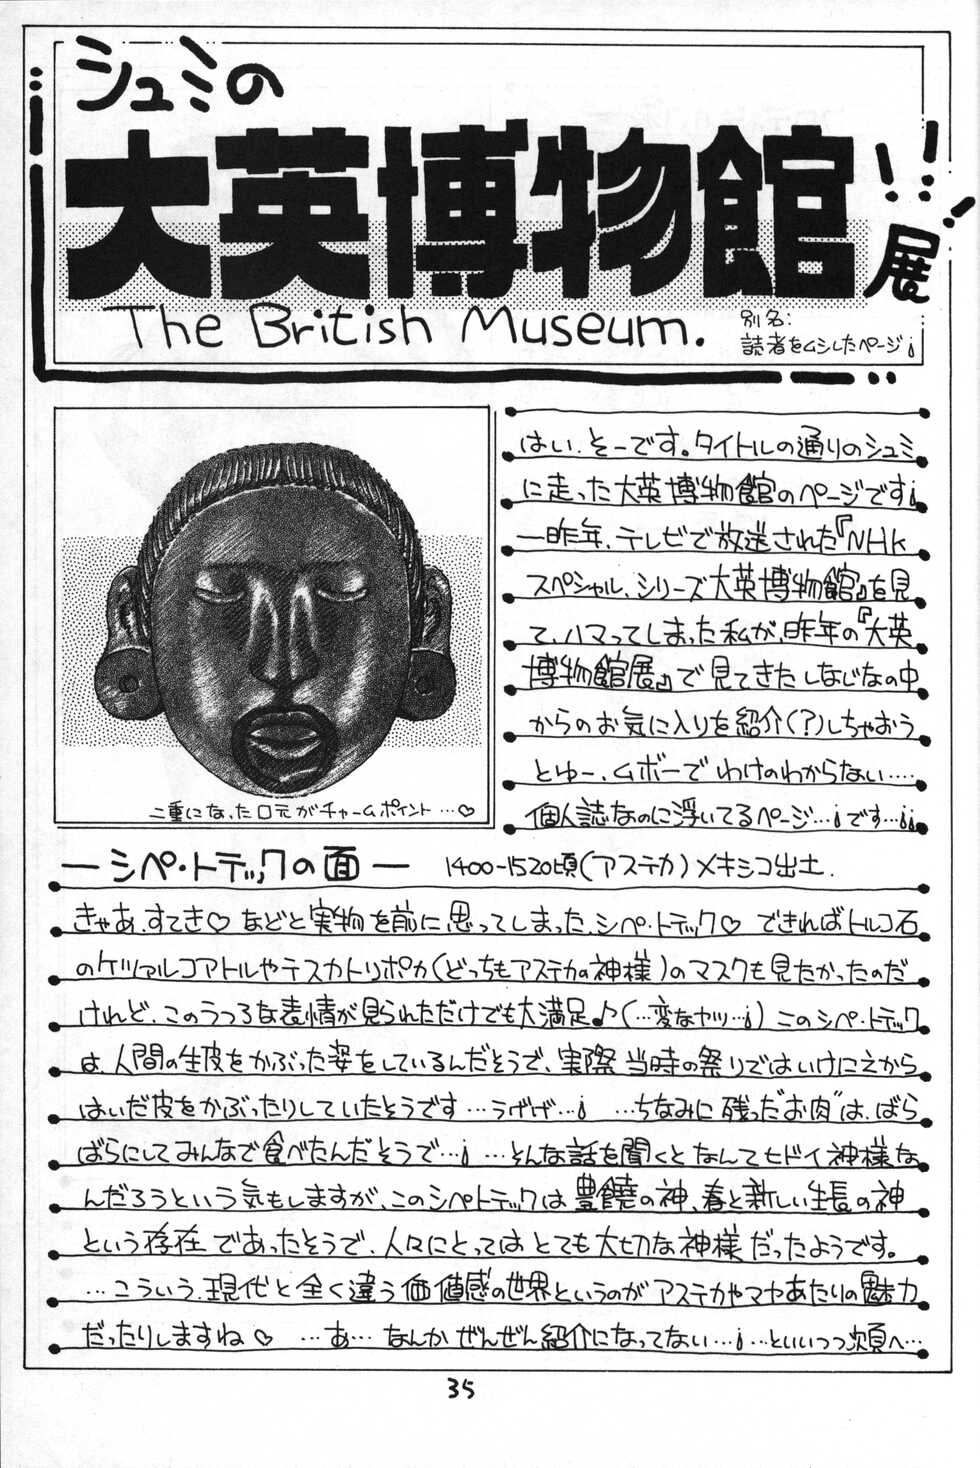 シュミの
大英博物館
展
The British Museum.
別名:
読者をムシしたページ¡
はい、そーです。タイトルの通りのシュミ
に走った大英博物館のページです¡
一昨年、テレビで放送された『NHK
スペシャル、シリーズ大英博物館』を見
て、ハマってしまった私が、昨年の『大英
博物館展』で見てきたしなじなの中
からのお気に入りを紹介(?)しちゃおう
とゆー、ムボーでわけのわからない‥‥
個人誌なのに浮いてるページ…¡です…¡¡
二重になった口元がチャームポイント…♡
ーシペ・トテックの面ー 1400-1520頃(アステカ)メキシコ出土.
きゃあ、すてき♡ などと実物を前に思ってしまった、シペ・トテック♡ できればトルコ石
のケツァルコアトルやテスカトリポカ(どっちもアステカの神様)のマスクも見たかったのだ
けれど、このうつろな表情が見られただけでも大満足♪(…変なヤツ…¡) このシペ・トテック
は、人間の生皮をかぶった姿をしているんだそうで、実際当時の祭りではいけにえから
はいだ皮をかぶったりしていたそうです…うげげ…¡ …ちなみに残った"お肉"は、ばら
ばらにしてみんなで食べたんだそうで…¡ …そんな話を聞くとなんてヒドイ神様な
んだろうという気もしますが、このシペトテックは豊饒の神、春と新しい生長の神
という存在であったそうで、人々にとってはとても大切な神様だったようです。
…こういう、現代と全く違う価値感の世界というのがアステカやマヤあたりの魅力
だったりしますね♡ …あ… なんかぜんぜん紹介になってない…¡…といいつつ次頁へ…
35